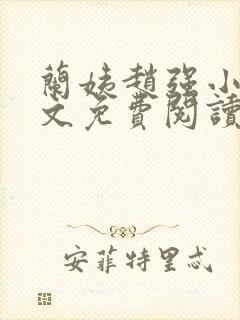 蘭姨趙强小
文免費閱讀
安菲特里忒